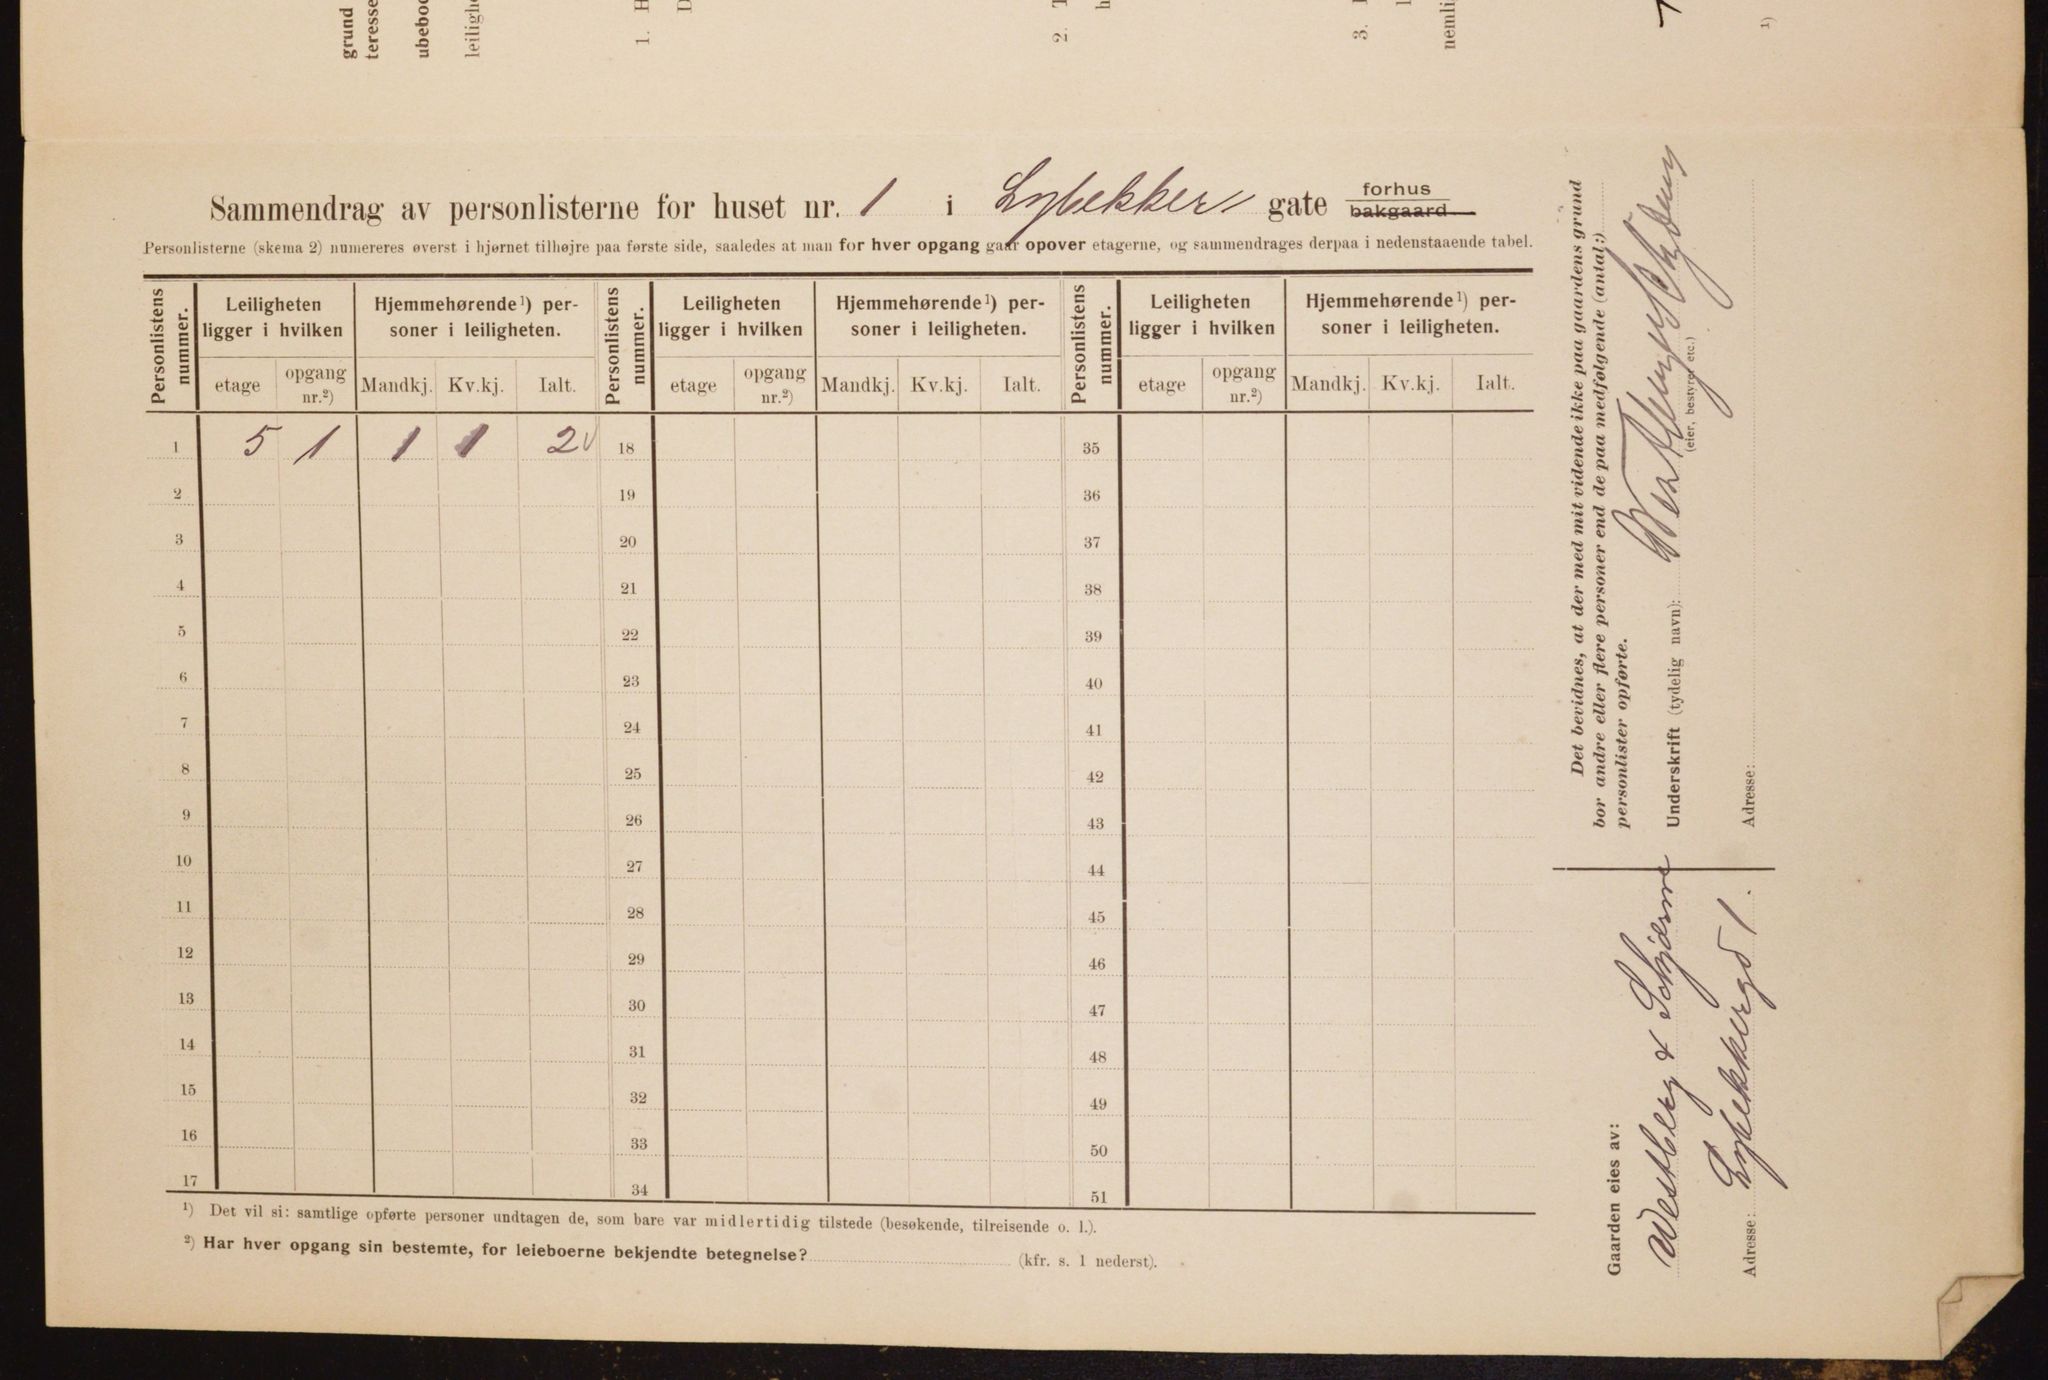 grund
teresse
ubeboe
leilighe
1. H
D
2. T
h
3.
nemlig
1)
Sammendrag av personlisterne for huset nr. 1 i Lybekker gate forhus
bakgaard
Personlisterne (skema 2) numereres øverst i hjørnet tilhøjre paa første side, saaledes at man for hver opgang gaar opover etagerne, og sammendrages derpaa i nedenstaaende tabel.
Personlistens nummer. Leiligheten ligger i hvilken Hjemmehørende¹) personer i leiligheten. Personlistens nummer. Leiligheten ligger i hvilken Hjemmehørende¹) personer i leiligheten. Personlistens nummer. Leiligheten ligger i hvilken Hjemmehørende¹) personer i leiligheten.
etage opgang nr.²) Mandkj. Kv.kj. Ialt. etage opgang nr.²) Mandkj. Kv.kj. Ialt. etage opgang nr.²) Mandkj. Kv.kj. Ialt.
1 5 1 1 1 2 18 35
2 19 36
3 20 37
4 21 38
5 22 39
6 23 40
7 24 41
8 25 42
9 26 43
10 27 44
11 28 45
12 29 46
13 30 47
14 31 48
15 32 49
16 33 50
17 34 51
¹) Det vil si: samtlige opførte personer undtagen de, som bare var midlertidig tilstede (besøkende, tilreisende o. l.).
²) Har hver opgang sin bestemte, for leieboerne bekjendte betegnelse? (kfr. s. 1 nederst).
Det bevidnes, at der med mit vidende ikke paa gaardens grund
bor andre eller flere personer end de paa medfølgende (antal:)
personlister opførte.
Underskrift (tydelig navn):
(eier, bestyrer etc.)
Adresse:
Gaarden eies av:
Westberg & Schjerne
Adresse: Lybekkergd 1.